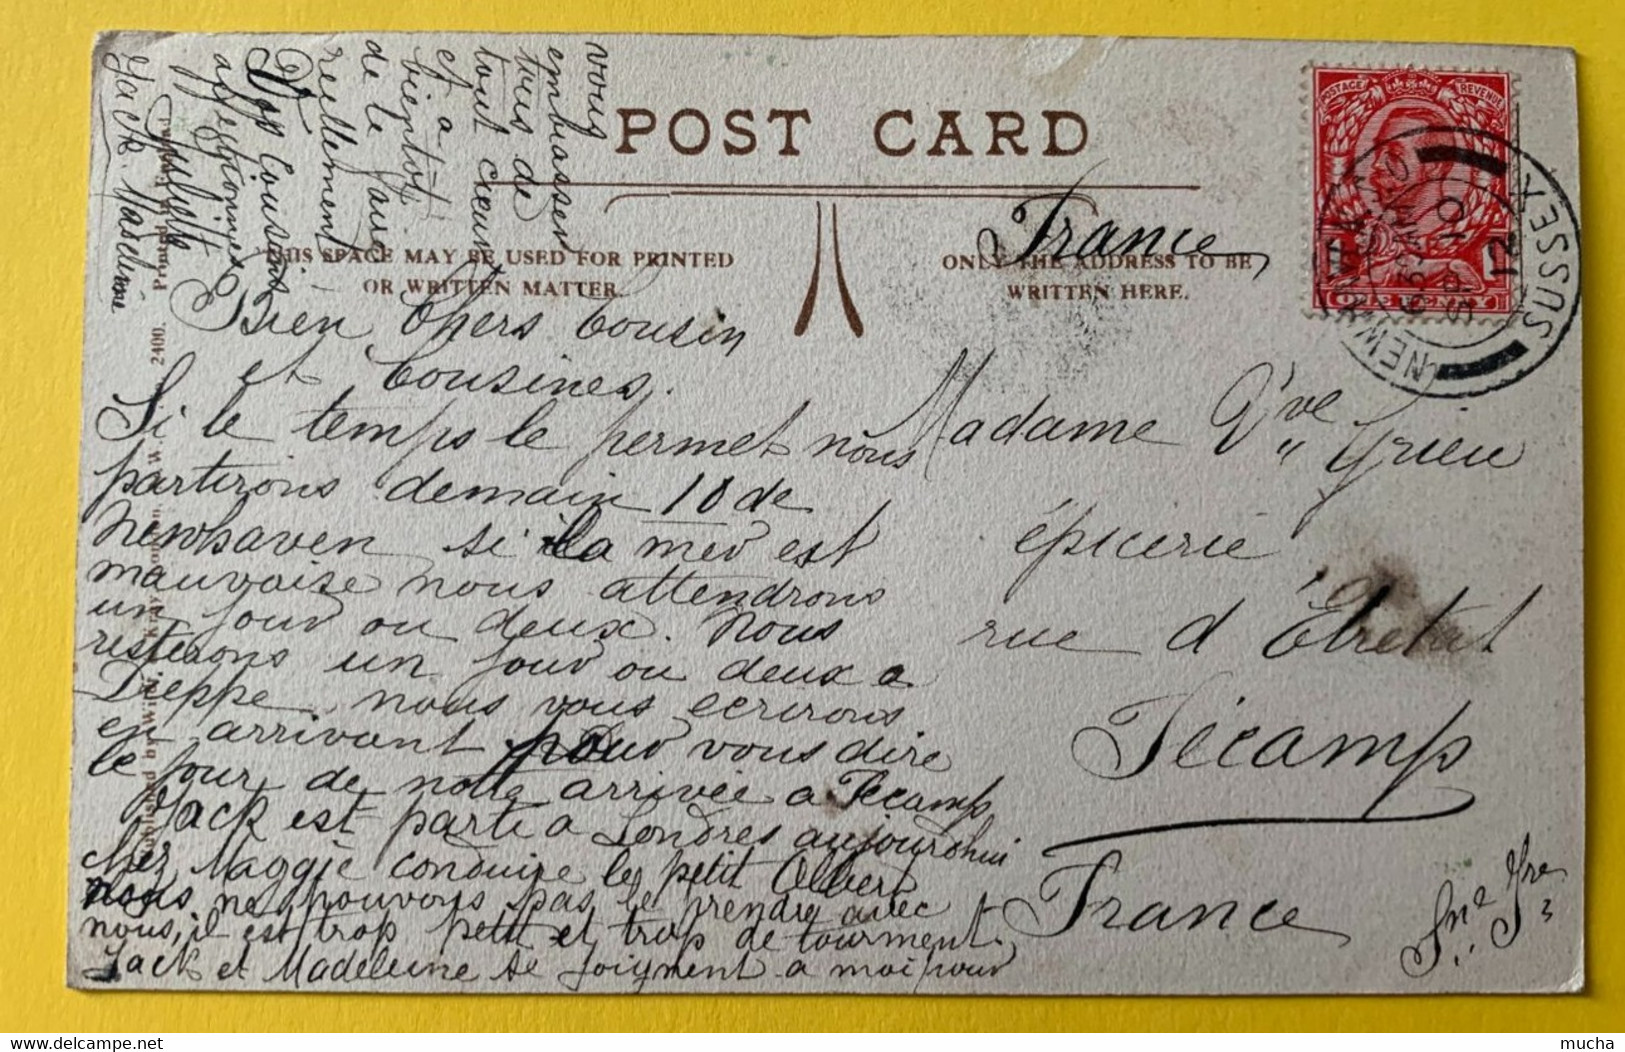 POST CARD
THIS SPACE MAY BE USED FOR PRINTED
OR WRITTEN MATTER.
ONLY THE ADDRESS TO BE
WRITTEN HERE.
France
POSTAGE REVENUE
ONE PENNY
NEWHAVEN
SUSSEX
SP 10
12
Bien Chers Cousin
et Cousines.
Si le temps le permet nous
partirons demain 10 de
Newhaven si la mer est
mauvaise nous attendrons
un jour ou deux. Nous
resterons un jour ou deux a
Dieppe, nous vous ecrirons
en arrivant pour vous dire
le jour de notre arrivée a Fécamp
Jack est parti a Londres aujourdhui
chez Maggie conduire le petit Albert
nous ne pouvons pas le prendre avec
nous, il est trop petit et trop de tourment.
Jack et Madeleine se joignent a moi pour
vous
embrasser
tous de
tout cœur
et a
bientot
de le
reellement
Cousins
affectionnés
Jack. Madeleine
Madame Vve Grieu
épicerie
rue d'Étretat
Fécamp
France
2400.
Printed in